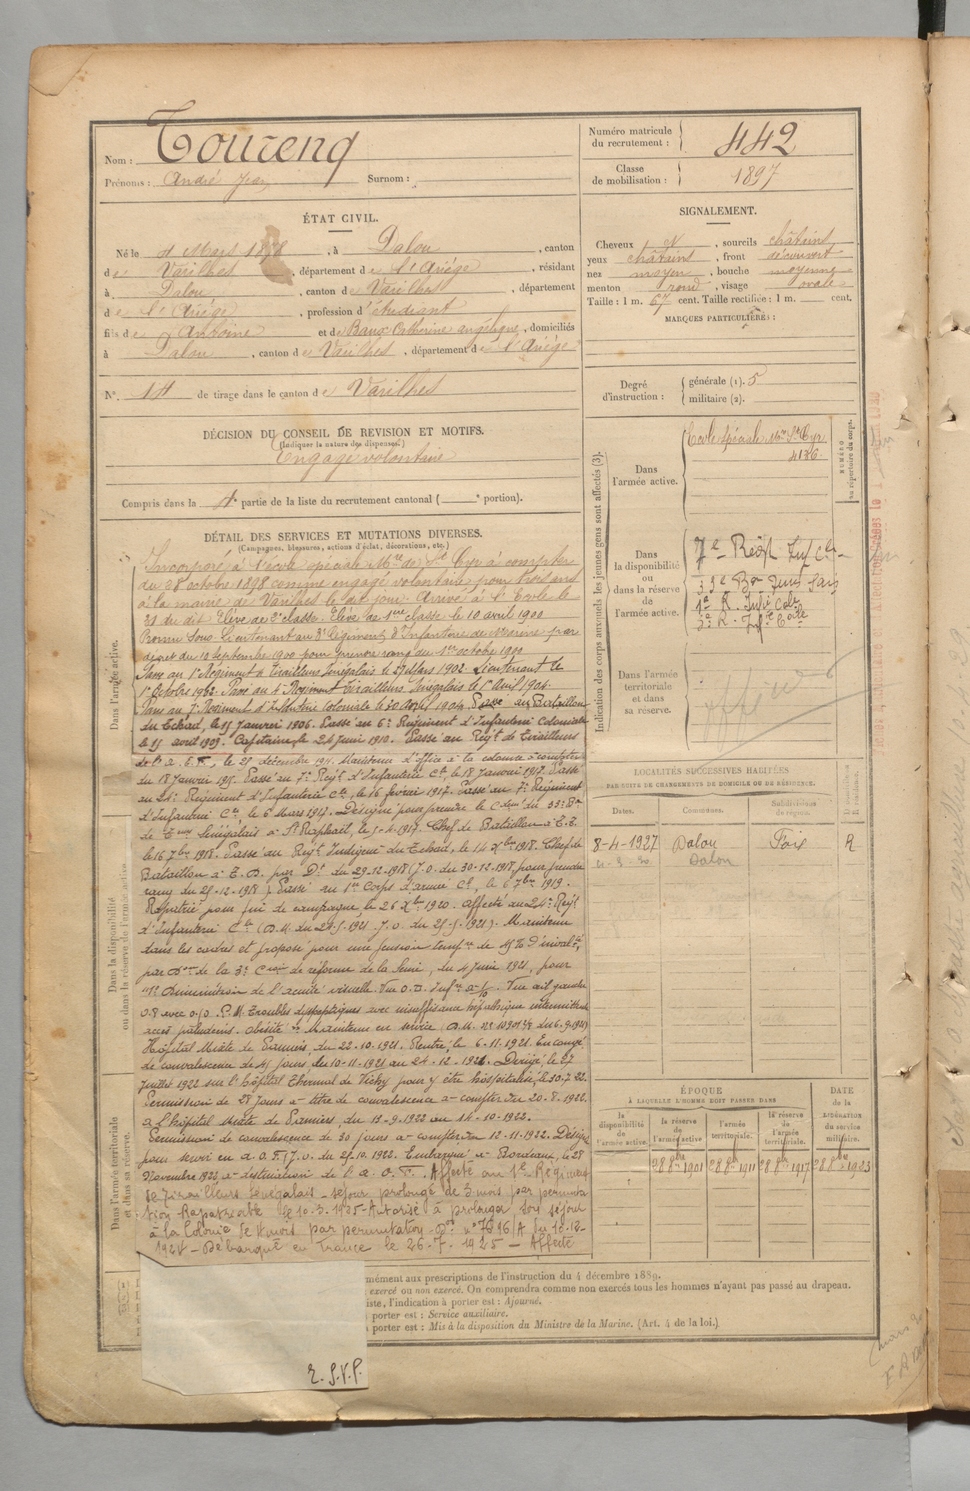 Nom : Tourenq
Prénoms : André Jean Surnom :
Numéro matricule du recrutement : 442
Classe de mobilisation : 1897
ÉTAT CIVIL.
Né le 4 Mars 1878, à Dalou, canton
de Varilhes, département de l'Ariège, résidant
à Dalou, canton de Varilhes, département
de l'Ariège, profession d'étudiant
fils de Antoine et de Baux Catherine angélique, domiciliés
à Dalou, canton de Varilhes, département de l'Ariège
N° 14 de tirage dans le canton de Varilhes
DÉCISION DU CONSEIL DE REVISION ET MOTIFS.
(Indiquer la nature des dispenses.)
Engagé volontaire
Compris dans la partie de la liste du recrutement cantonal ( portion).
SIGNALEMENT.
Cheveux , sourcils châtains
yeux châtains, front découvert
nez moyen, bouche moyenne
menton rond, visage ovale
Taille : 1 m. 67 cent. Taille rectifiée : 1 m. cent.
MARQUES PARTICULIÈRES :
Degré d'instruction : générale (1). 5
militaire (2).
DÉTAIL DES SERVICES ET MUTATIONS DIVERSES.
(Campagnes, blessures, actions d'éclat, décorations, etc.)
Dans l'armée active.
Incorporé à l'école spéciale Mre de St Cyr à compter
du 28 octobre 1898 comme engagé volontaire pour trois ans
à la mairie de Varilhes le dit jour. Arrivé à l'Ecole le
31 du dit. Elève de 2e classe. Elève de 1ère classe le 10 avril 1900
Promu Sous-Lieutenant au 3e Régiment d'Infanterie de Marine par
décret du 10 Septembre 1900 pour prendre rang du 1er octobre 1900
Passé au 1er Régiment de Tirailleurs Sénégalais le 27 Mars 1902. Lieutenant le
1er Octobre 1902. Passé au 4e Régiment Tirailleurs Sénégalais le 1er Avril 1904.
Passé au 7e Régiment d'Infanterie Coloniale le 30 Avril 1904. Passé au Bataillon
du Tchad, le 15 Janvier 1906. Passé au 6e Régiment d'Infanterie Coloniale
le 15 avril 1909. Capitaine, le 24 Juin 1910. Passé au Régt de Tirailleurs
de l'A. E. F., le 25 décembre 1911. Maintenu d'office à la colonie à compter
du 18 Janvier 1915. Passé au 7e Régt d'Infanterie Cle, le 18 Janvier 1917. Passé
au 21e Régiment d'Infanterie Cle, le 16 février 1917. Passé au 7e Régiment
d'Infanterie Cle le 6 Mars 1917. Désigné pour prendre le Cdemt du 33e Bon
de Sénégalais à St Raphaël, le 5-4-1917. Chef de Bataillon à T.T.
le 16 7bre 1918. Passé au Régt Indigène du Tchad, le 14 Xbre 1918. Chef de
Bataillon à T. D. par Dt du 29-12-1918 (J.O. du 30-12-1918, pour prendre
rang du 25-12-1918). Passé au 1er Corps d'armée Cl, le 6 7bre 1919.
Rapatrié pour fin de campagne, le 26 Xbre 1920. Affecté au 24e Régt
d'Infanterie Cle (D.M. du 21-5-1921. J.O. du 25-5-1921). Maintenu
dans les cadres et proposé pour une pension tempre de 15% d'invalté,
par Don de la 3e Con de réforme de la Seine, du 4 Juin 1921, pour
1° Diminution de l'acuité visuelle. Vue O.D.
Troubles dyspeptiques avec insuffisance hépathique intermittente
accès paludéens. obésité. Maintenu en service
Hôpital Mixte de Pamiers, du 22-10-1921. Rentré, le 6-11-1921. En congé
de convalescence de 45 jours du 10-11-1921 au 24-12-1921. Dirigé le 27
Juillet 1922 sur l'hôpital thermal de Vichy pour y être hospitalisé le 30-7-22.
Permission de 28 jours à titre de convalescence à compter du 20-8-1922.
à l'hôpital Mixte de Pamiers du 19-9-1922 au 14-10-1922.
Permission de convalescence de 30 jours à compter du 12-11-1922. Désigné
pour servir en A.O.F. (J.O. du 25-10-1922. Embarqué à Bordeaux, le 28
Novembre 1922, à destination de l'A.O.F. Affecté au 1e Régiment
de Tirailleurs Sénégalais séjour prolongé de 3 mois par permuta
tion Rapatriable le 10.3.1925 - Autorisé à prolonger son séjour
à la Colonie de 4 mois par permutation. Don n° 7696/A du 10-12-
1924 - Débarqué en France le 26-7-1925 - Affecté
Dans la disponibilité ou dans la réserve de l'armée active.
Dans l'armée territoriale et dans sa réserve.
Indication des corps auxquels les jeunes gens sont affectés (3).
Dans l'armée active.
Ecole Spéciale Mre St Cyr
4126
NUMÉRO au répertoire du corps.
Dans la disponibilité ou dans la réserve de l'armée active.
7e Régt Inf Cle
33e Bon
1e R. Inf. Cole
3e R. Infie Cole
Dans l'armée territoriale et dans sa réserve.
officier
LOCALITÉS SUCCESSIVES HABITÉES
PAR SUITE DE CHANGEMENTS DE DOMICILE OU DE RÉSIDENCE.
Dates. Communes. Subdivisions de région. D. Domicile R. Résidence.
8-4-1927 Dalou Foix R
Dalou
ÉPOQUE
À LAQUELLE L'HOMME DOIT PASSER DANS
DATE de la LIBÉRATION du service militaire.
la disponibilité de l'armée active.
la réserve de l'armée active
l'armée territoriale.
la réserve de l'armée territoriale.
28 8bre 1901 28 8bre 1911 28 8bre 1917 28 8bre 1923
mément aux prescriptions de l'instruction du 4 décembre 1889.
exercé ou non exercé. On comprendra comme non exercés tous les hommes n'ayant pas passé au drapeau.
iste, l'indication à porter est : Ajourné.
à porter est : Service auxiliaire.
à porter est : Mis à la disposition du Ministre de la Marine. (Art. 4 de la loi.)
T. S. V. P.